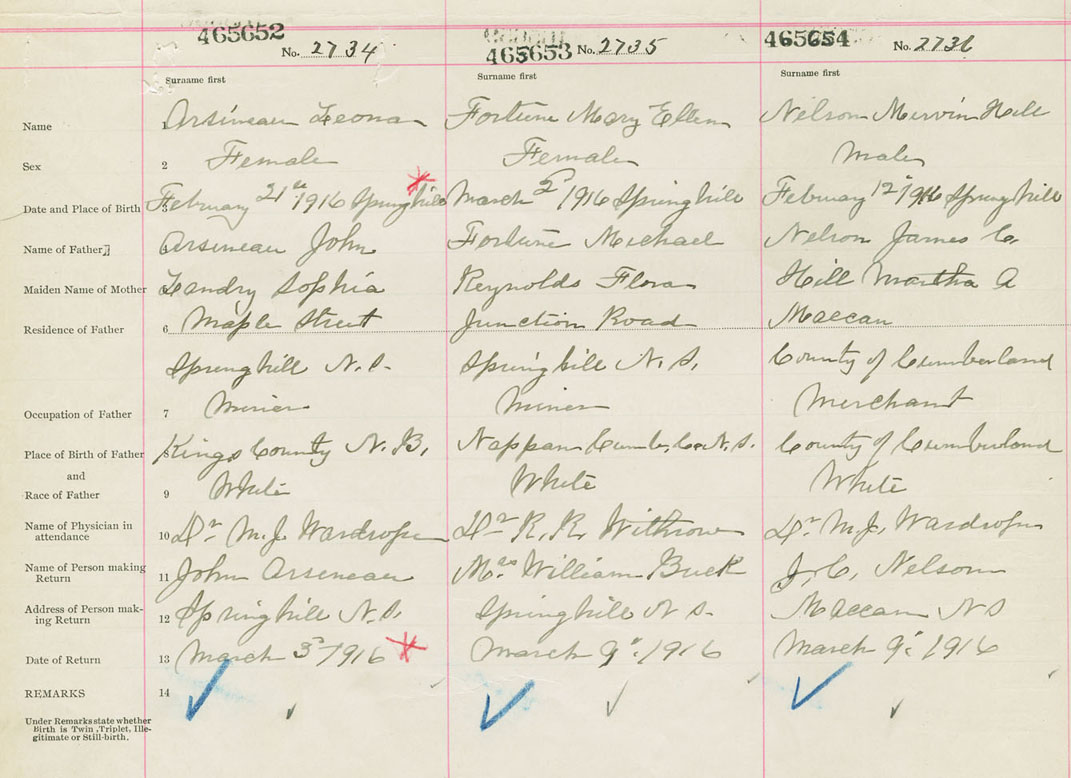 465652
No. 2734
465653 No. 2735
465654
No. 2736
Surname first
Surname first
Surname first
Name 1 Arsineau Leona Fortune Mary Ellen Nelson Mervin Hill
Sex 2 Female Female Male
Date and Place of Birth 3 February 21st 1916 Springhill March 2 1916 Springhill February 12" 1916 Springhill
Name of Father 4 Arsineau John Fortune Michael Nelson James C.
Maiden Name of Mother 5 Landry Sophia Reynolds Flora Hill Martha A
Residence of Father 6 Maple Street Junction Road Maccan
Springhill N.S. Springhill N.S. County of Cumberland
Occupation of Father 7 Miner Miner Merchant
Place of Birth of Father 8 Kings County N.B. Nappan Cumb. Co. N.S. County of Cumberland
and
Race of Father 9 White White White
Name of Physician in
attendance 10 Dr M.J. Wardrope Dr R.R. Withrow Dr M.J. Wardrope
Name of Person making
Return 11 John Arseneau Mrs William Buck J.C. Nelson
Address of Person mak-
ing Return 12 Springhill N.S. Springhill N S. Maccan N S
Date of Return 13 March 3rd 1916 March 9" 1916 March 9" 1916
REMARKS 14
Under Remarks state whether
Birth is Twin, Triplet, Ille-
gitimate or Still-birth.